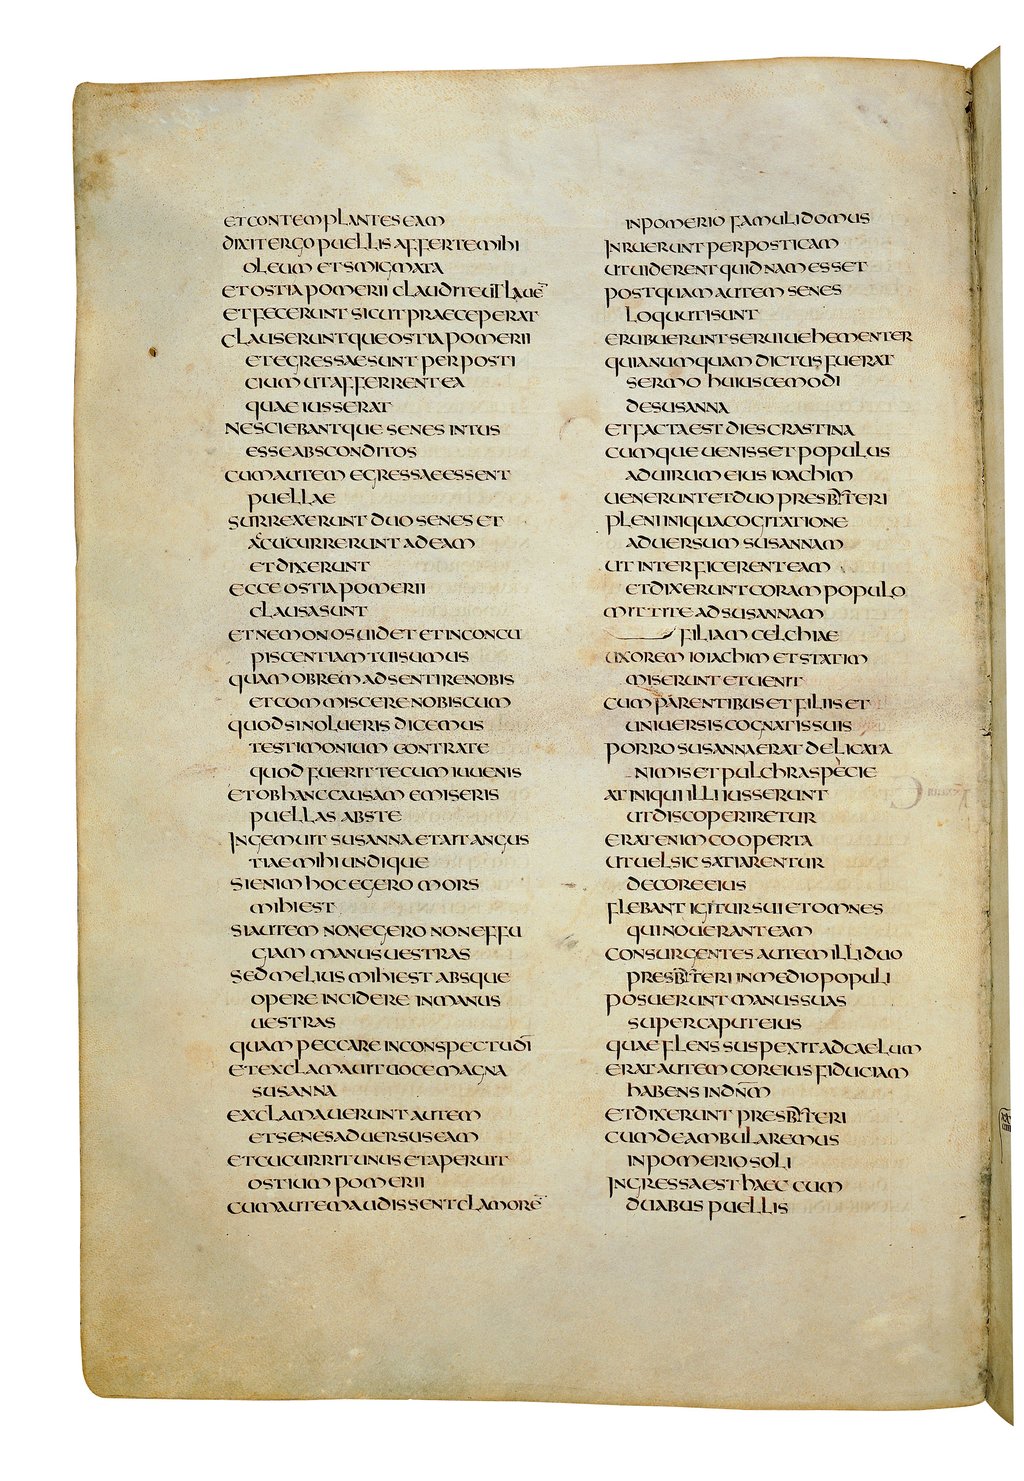 ET CONTEMPLANTES EAM
DIXIT ERGO PUELLIS AFFERTE MIHI
OLEUM ET SMIGMATA
ET OSTIA POMERII CLAUDITE UT LAUĒ
ET FECERUNT SICUT PRAECEPERAT
CLAUSERUNTQUE OSTIA POMERII
ET EGRESSAE SUNT PER POSTI
CIUM UT AFFERRENT EA
QUAE IUSSERAT
NESCIEBANTQUE SENES INTUS
ESSE ABSCONDITOS
CUM AUTEM EGRESSAE ESSENT
PUELLAE
SURREXERUNT DUO SENES ET
ACCUCURRERUNT AD EAM
ET DIXERUNT
ECCE OSTIA POMERII
CLAUSA SUNT
ET NEMO NOS UIDET ET IN CONCU
PISCENTIAM TUI SUMUS
QUAM OB REM ADSENTIRE NOBIS
ET COMMISCERE NOBISCUM
QUOD SI NOLUERIS DICEMUS
TESTIMONIUM CONTRA TE
QUOD FUERIT TECUM IUUENIS
ET OB HANC CAUSAM EMISERIS
PUELLAS ABS TE
INGEMUIT SUSANNA ET AIT ANGUS
TIAE MIHI UNDIQUE
SI ENIM HOC EGERO MORS
MIHI EST
SI AUTEM NON EGERO NON EFFU
GIAM MANUS UESTRAS
SED MELIUS MIHI EST ABSQUE
OPERE INCIDERE IN MANUS
UESTRAS
QUAM PECCARE IN CONSPECTU DN̄I
ET EXCLAMAUIT UOCE MAGNA
SUSANNA
EXCLAMAUERUNT AUTEM
ET SENES ADUERSUS EAM
ET CUCURRIT UNUS ET APERUIT
OSTIUM POMERII
CUM AUTEM AUDISSENT CLAMORĒ
IN POMERIO FAMULI DOMUS
INRUERUNT PER POSTICAM
UT UIDERENT QUIDNAM ESSET
POSTQUAM AUTEM SENES
LOQUUTI SUNT
ERUBUERUNT SERUI UEHEMENTER
QUIA NUMQUAM DICTUS FUERAT
SERMO HUIUSCEMODI
DE SUSANNA
ET FACTA EST DIES CRASTINA
CUMQUE UENISSET POPULUS
AD UIRUM EIUS IOACHIM
UENERUNT ET DUO PRESBYTERI
PLENI INIQUA COGITATIONE
ADUERSUM SUSANNAM
UT INTERFICERENT EAM
ET DIXERUNT CORAM POPULO
MITTITE AD SUSANNAM
FILIAM CELCHIAE
UXOREM IOIACHIM ET STATIM
MISERUNT ET UENIT
CUM PARENTIBUS ET FILIIS ET
UNIUERSIS COGNATIS SUIS
PORRO SUSANNA ERAT DELICATA
NIMIS ET PULCHRA SPECIE
AT INIQUI ILLI IUSSERUNT
UT DISCOPERIRETUR
ERAT ENIM COOPERTA
UT UEL SIC SATIARENTUR
DECORE EIUS
FLEBANT IGITUR SUI ET OMNES
QUI NOUERANT EAM
CONSURGENTES AUTEM ILLI DUO
PRESBYTERI IN MEDIO POPULI
POSUERUNT MANUS SUAS
SUPER CAPUT EIUS
QUAE FLENS SUSPEXIT AD CAELUM
ERAT AUTEM COR EIUS FIDUCIAM
HABENS IN DN̄M
ET DIXERUNT PRESBYTERI
CUM DEAMBULAREMUS
IN POMERIO SOLI
INGRESSA EST HAEC CUM
DUABUS PUELLIS